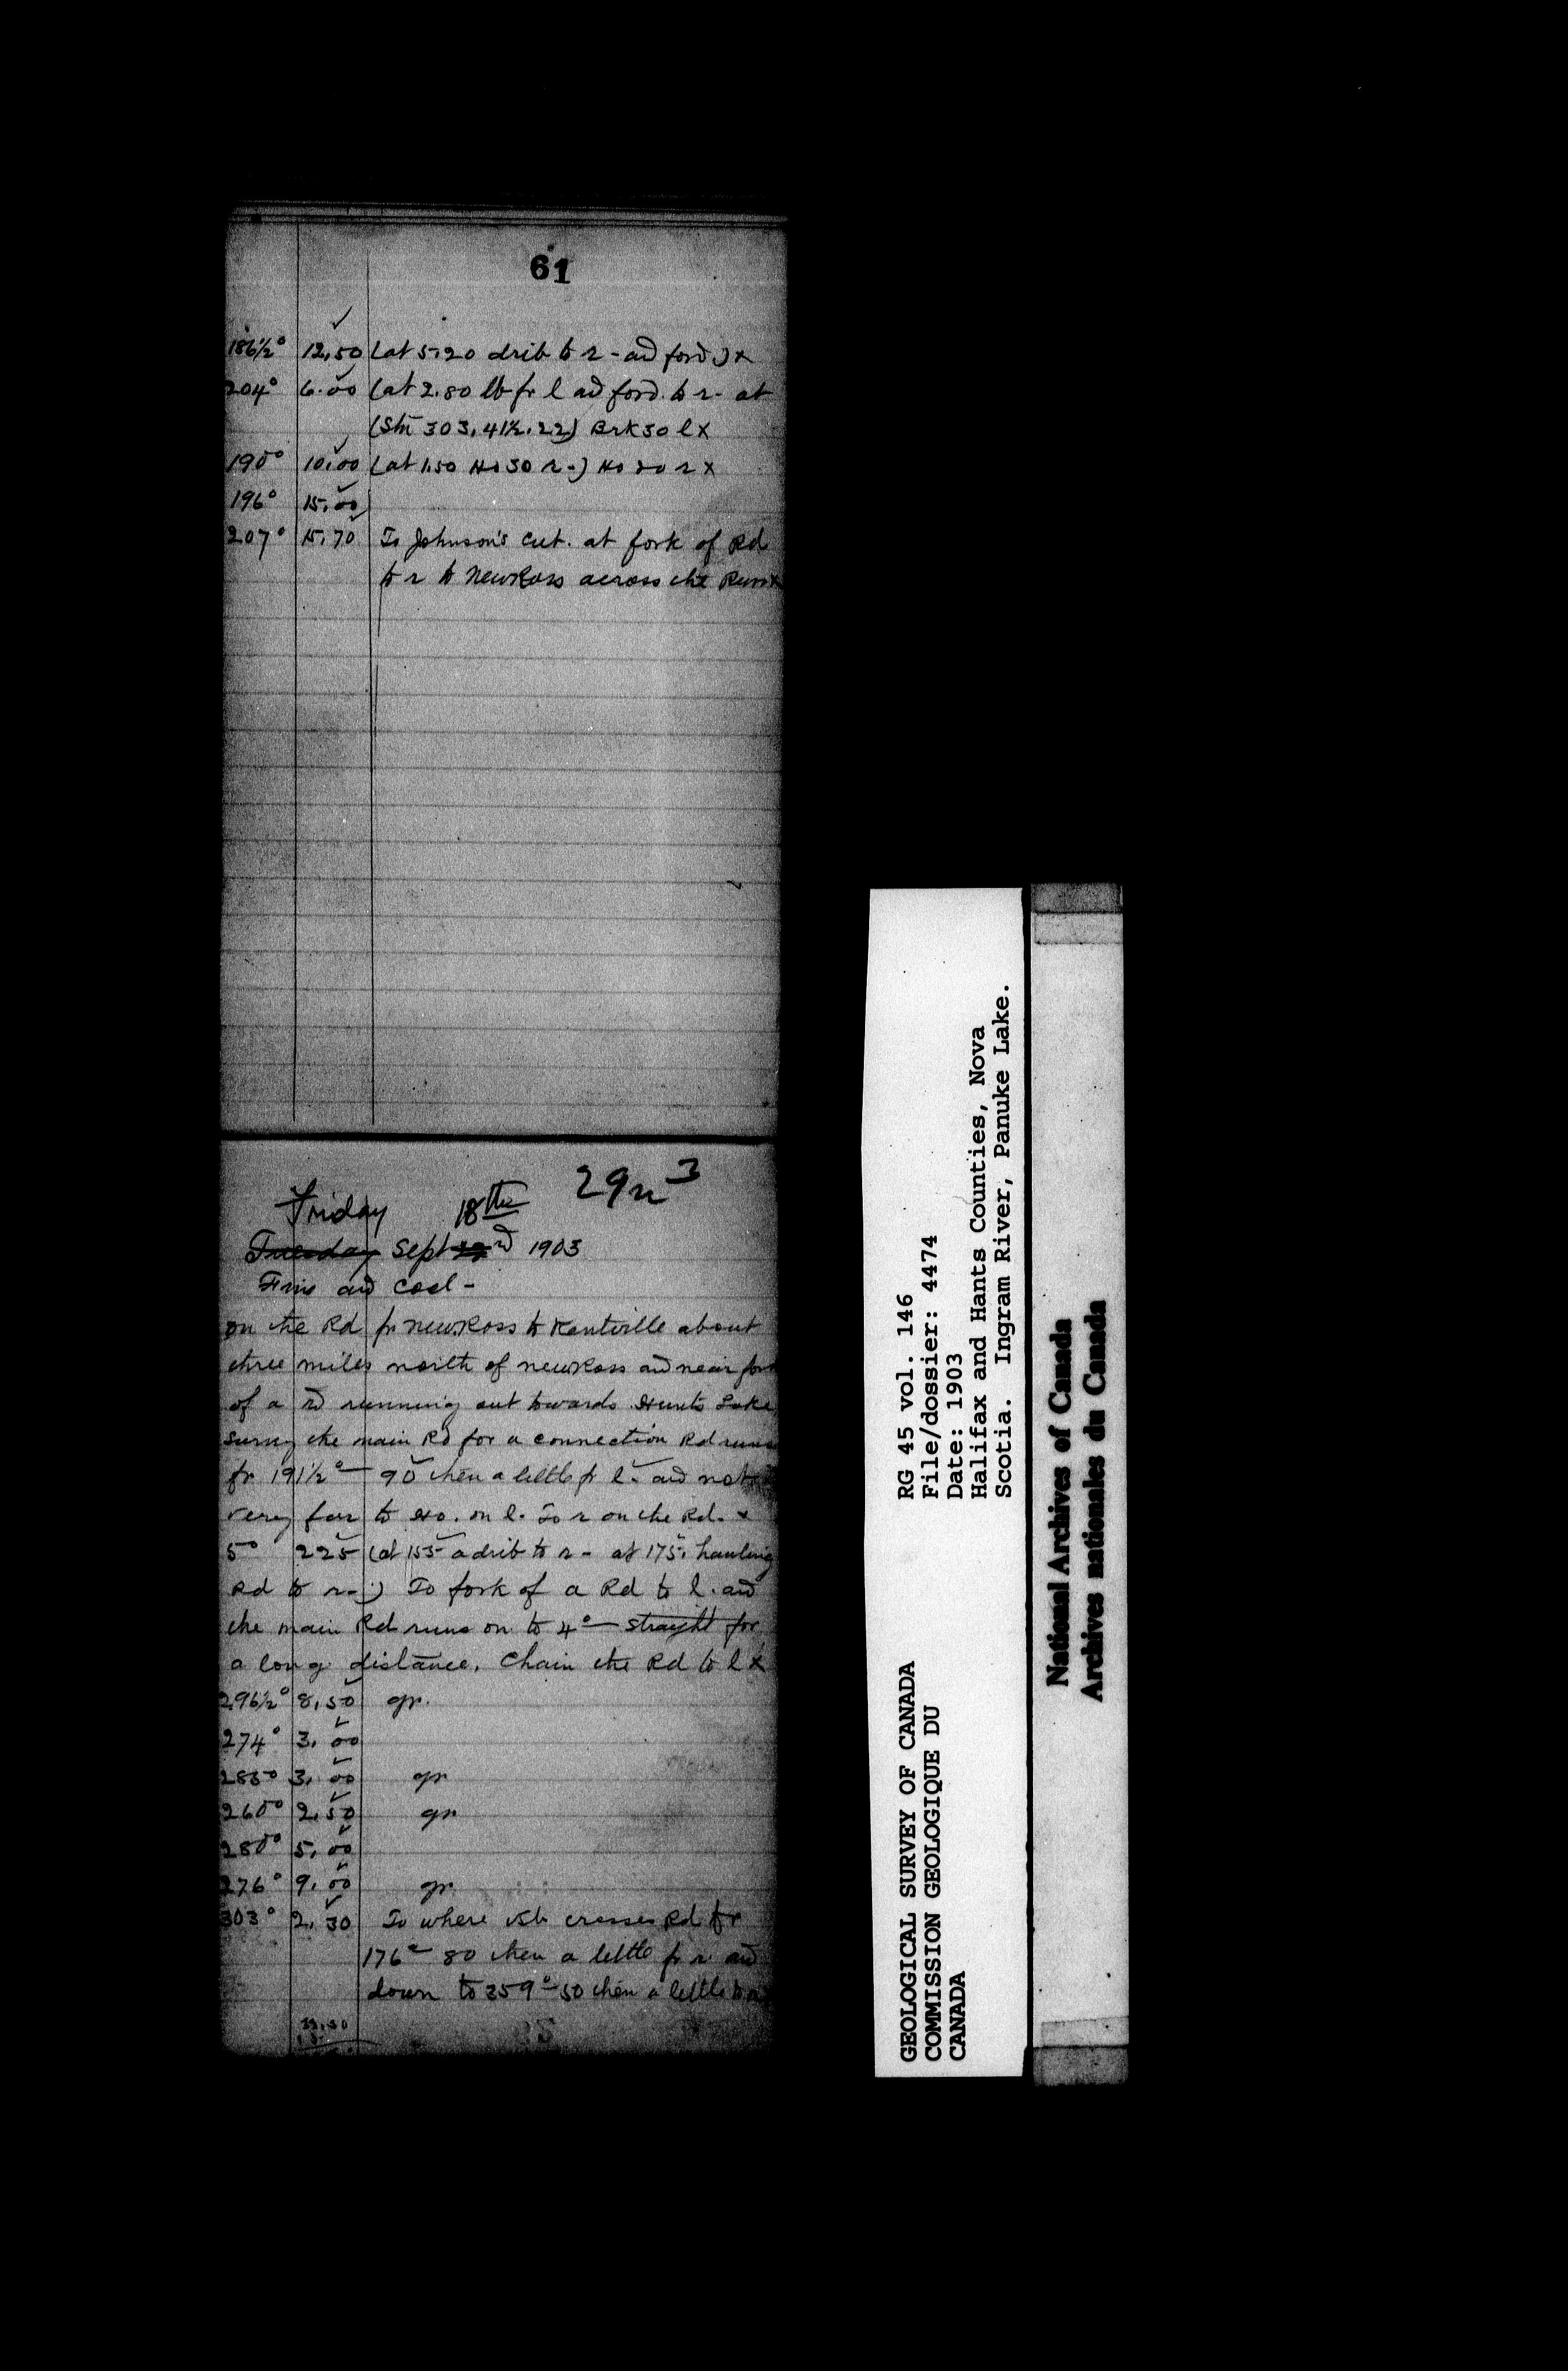 61
186½° 12.50 (at 5.20 drib to r - and ford.) x
204° 6.00 (at 2.80 lb fr l and ford. to r - at
(Stn 303. 41½. 22) Brk 30 l x
190° 10.00 (at 1.50 Ho 30 r -) Ho 20 r x
196° 15.00
207° 15.70 To Johnson's cut. at fork of Rd
to r to New Ross across the
Friday 18th 29n3
Tuesday Sept 22nd 1903
Fine and cool -
on the Rd fr New Ross to Kentville about
three miles north of New Ross and near
of a rd running out towards Hunts Lake
survey the main Rd for a connection Rd runs
fr 191½° - 90 then a little fr l. and not
very far to Ho. on l. To r on the Rd. x
5° 225 (at 155 a drib to r - at 175. hauling
Rd to r -) To fork of a Rd to l. and
the main Rd runs on to 4° - straight for
a long distance. Chain the Rd to l x
296½° 8.50 gr.
274° 3.00
285° 3.00 gr
260° 2.50 gr
280° 5.00
276° 9.00 gr.
303° 2.30 To where crosses Rd fr
176° - 80 then a little fr r. and
down to 359° - 50 then a little to
33.30
GEOLOGICAL SURVEY OF CANADA
COMMISSION GEOLOGIQUE DU
CANADA
RG 45 vol. 146
File/dossier: 4474
Date: 1903
Halifax and Hants Counties, Nova
Scotia. Ingram River, Panuke Lake.
National Archives of Canada
Archives nationales du Canada